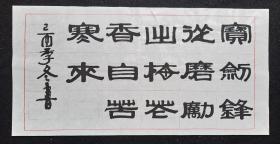 寶劍鋒
從磨勵
出梅花
香自苦
寒來
乙酉季冬書